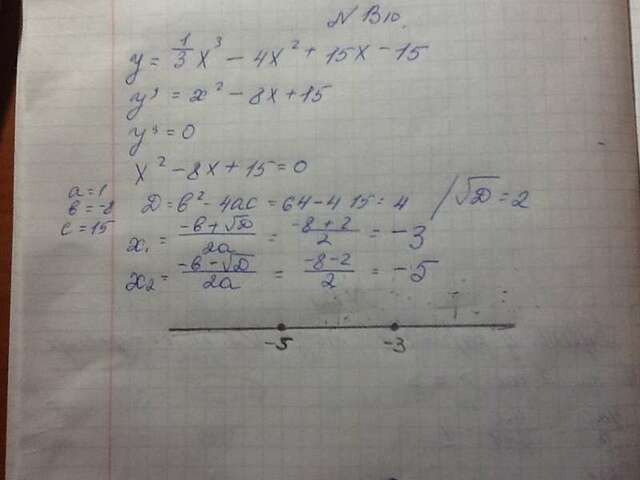 № В10.
y = 1/3 x³ - 4x² + 15x - 15
y' = x² - 8x + 15
y' = 0
x² - 8x + 15 = 0
a = 1
в = -8
c = 15
D = в² - 4ac = 64 - 4·15 = 4 / √D = 2
x₁ = (-в + √D)/2a = (-8 + 2)/2 = -3
x₂ = (-в - √D)/2a = (-8 - 2)/2 = -5
-5 -3